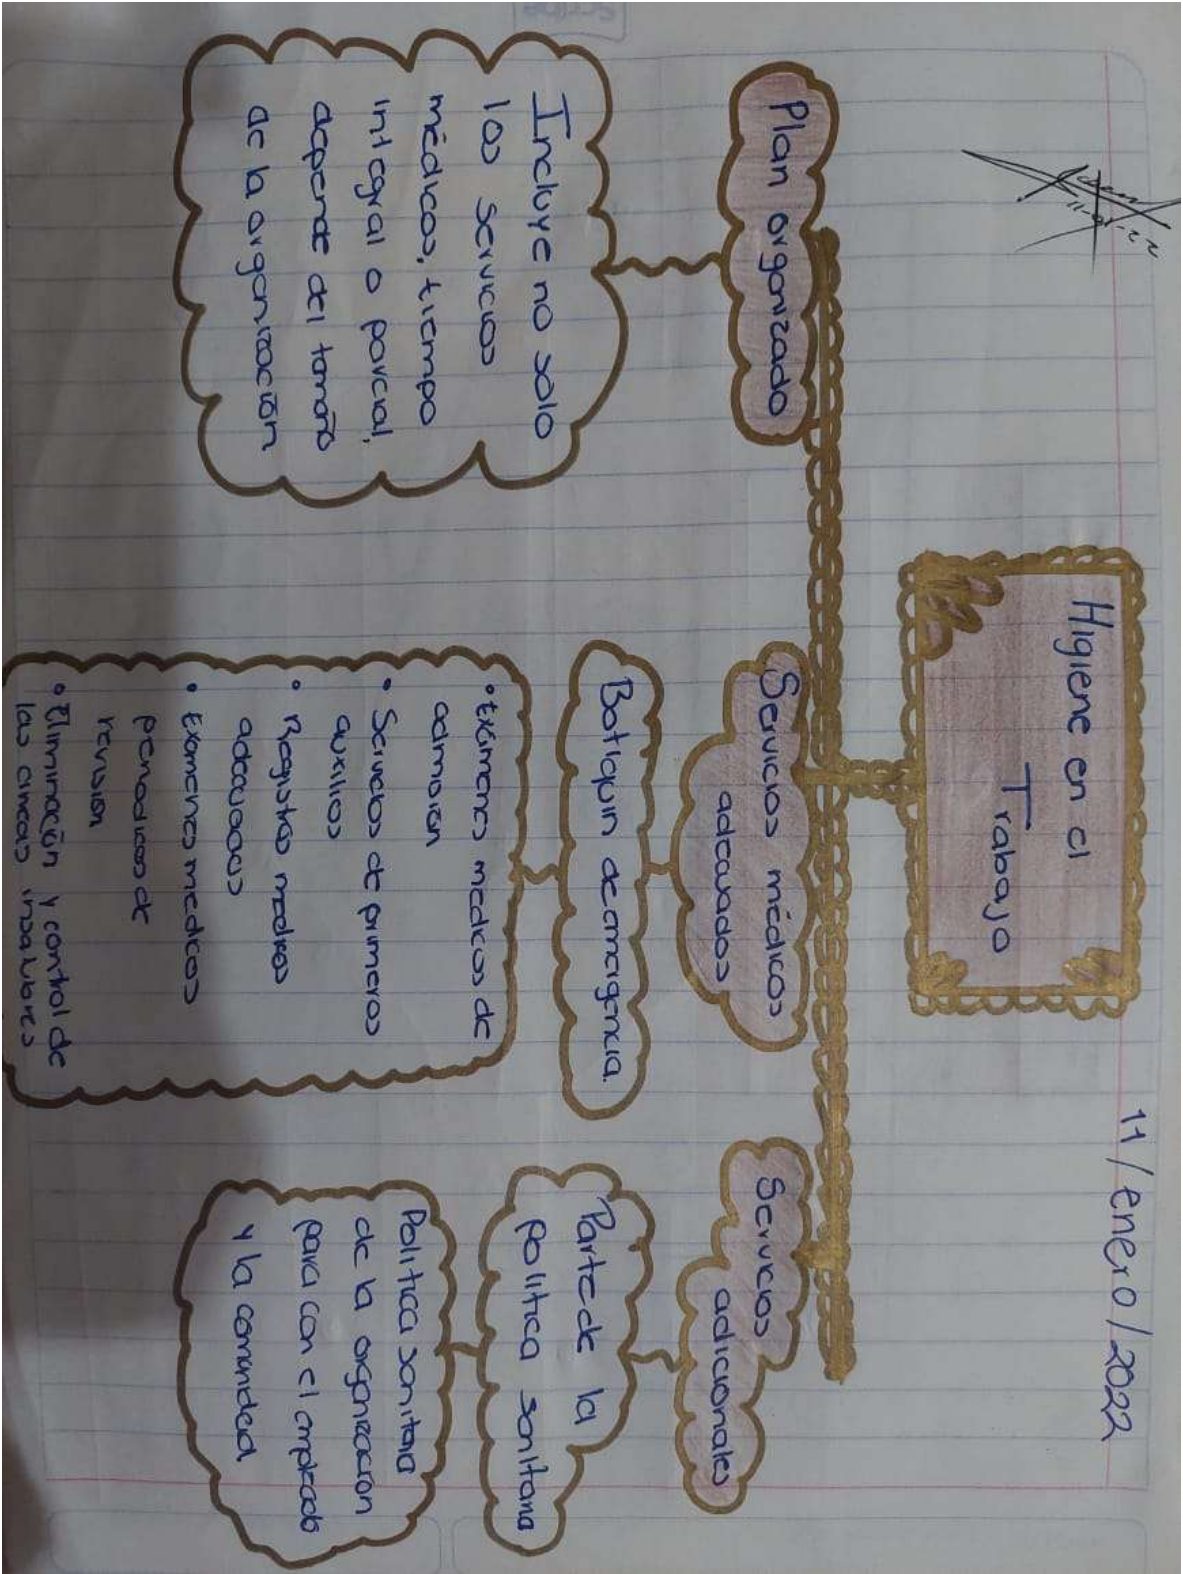 11/enero/2022
11-01-22
Higiene en el
Trabajo
Plan organizado
Incluye no solo
los servicios
médicos, tiempo
integral o parcial,
depende del tamaño
de la organización
Servicios médicos
adecuados
Botiquín de emergencia.
• Exámenes medicos de
admisión
• Servicios de primeros
auxilios
• Registros medicos
adecuados
• Exámenes medicos
periodicos de
revisión
• Eliminación y control de
las areas insalubres
Servicios
adicionales
Parte de la
política sanitaria
Política sanitaria
de la organización
para con el empleado
y la comunidad